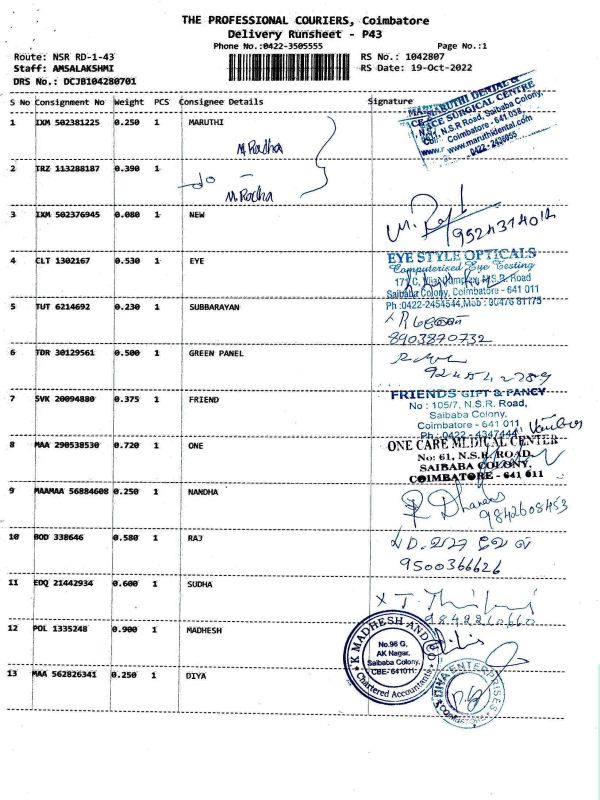 THE PROFESSIONAL COURIERS, Coimbatore
Delivery Runsheet - P43
Phone No.:0422-3505555 Page No.:1
Route: NSR RD-1-43 RS No.: 1042807
Staff: AMSALAKSHMI RS Date: 19-Oct-2022
DRS No.: DCJB104280701
S No Consignment No Weight PCS Consignee Details Signature
1 IXM 502381225 0.250 1 MARUTHI
M.Radha
MARUTHI DENTAL &
FACE SURGICAL CENTRE
N.S.R Road, Saibaba Colony,
Coimbatore - 641 038.
www.maruthidental.com
0422 - 2436955
2 TRZ 113288187 0.390 1
do -
M.Radha
3 IXM 502376945 0.080 1 NEW
9524314012
4 CLT 1302167 0.530 1 EYE
EYE STYLE OPTICALS
Computerised Eye Testing
171/C, Complex, N.S.R. Road
Saibaba Colony, Coimbatore - 641 011
Ph :0422-2454544, Mob : 90476 81175
5 TUT 6214692 0.230 1 SUBBARAYAN
8903870732
6 TDR 30129561 0.500 1 GREEN PANEL
7 SVK 20094880 0.375 1 FRIEND
FRIENDS GIFT & FANCY
No : 105/7, N.S.R. Road,
Saibaba Colony,
Coimbatore - 641 011
Ph : 0422 - 4347444
8 MAA 290538530 0.720 1 ONE
ONE CARE MEDICAL CENTER
No: 61, N.S.R. ROAD,
SAIBABA COLONY,
COIMBATORE - 641 011
9 MAAMAA 56884608 0.250 1 NANDHA
9842608453
10 BOD 338646 0.580 1 RAJ
9500366626
11 EDQ 21442934 0.600 1 SUDHA
9842260660
12 POL 1335248 0.900 1 MADHESH
K MADHESH AND CO
No.96 G,
AK Nagar,
Saibaba Colony,
CBE-641011.
Chartered Accountants
13 MAA 562826341 0.250 1 DIYA
DIYA ENTERPRISES
COIMBATORE